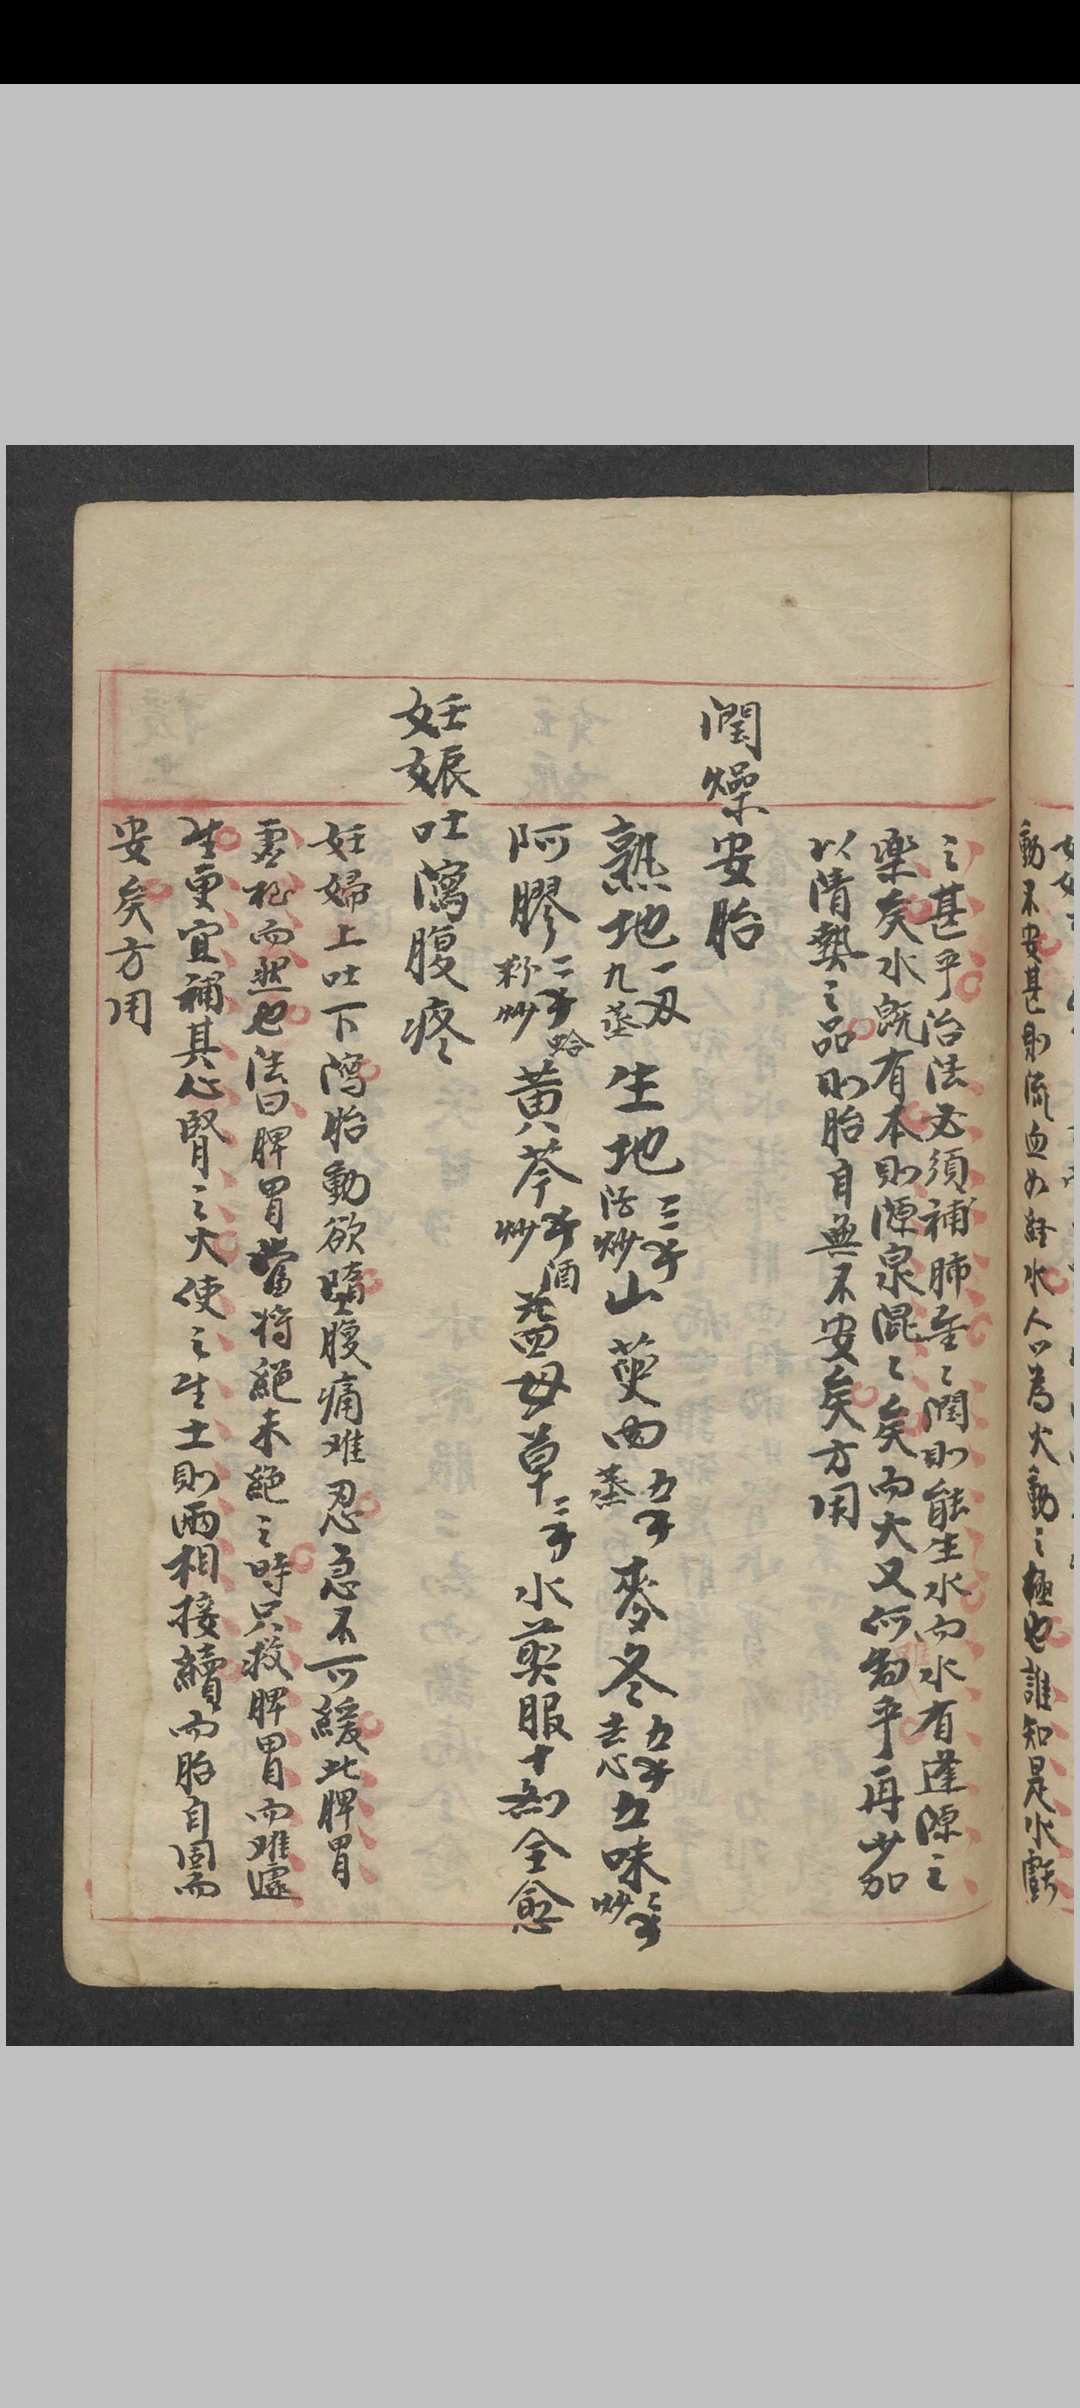 動不安甚則流血如經水人以為火動之極也誰知是水虧
之甚乎治法必須補肺金〻潤則能生水而水有逢源之
樂矣水旣有本則源泉混〻矣而火又何動乎再少加
以清熱之品則胎自無不安矣方用
潤燥安胎
熟地一刄九蒸 生地三子酒炒 山萸肉五子蒸 麥冬五子去心 五味二子炒
阿膠二子蛤粉炒 黄芩子酒炒 益母草二子 水煎服十劑全愈
妊娠吐瀉腹疼
妊婦上吐下瀉胎動欲墮腹痛难忍急不可緩此脾胃
虛極而然也法曰脾胃當將絕未絕之時只救脾胃而难遽
生更宜補其心腎之火使之生土則兩相接續而胎自固而
安矣方用